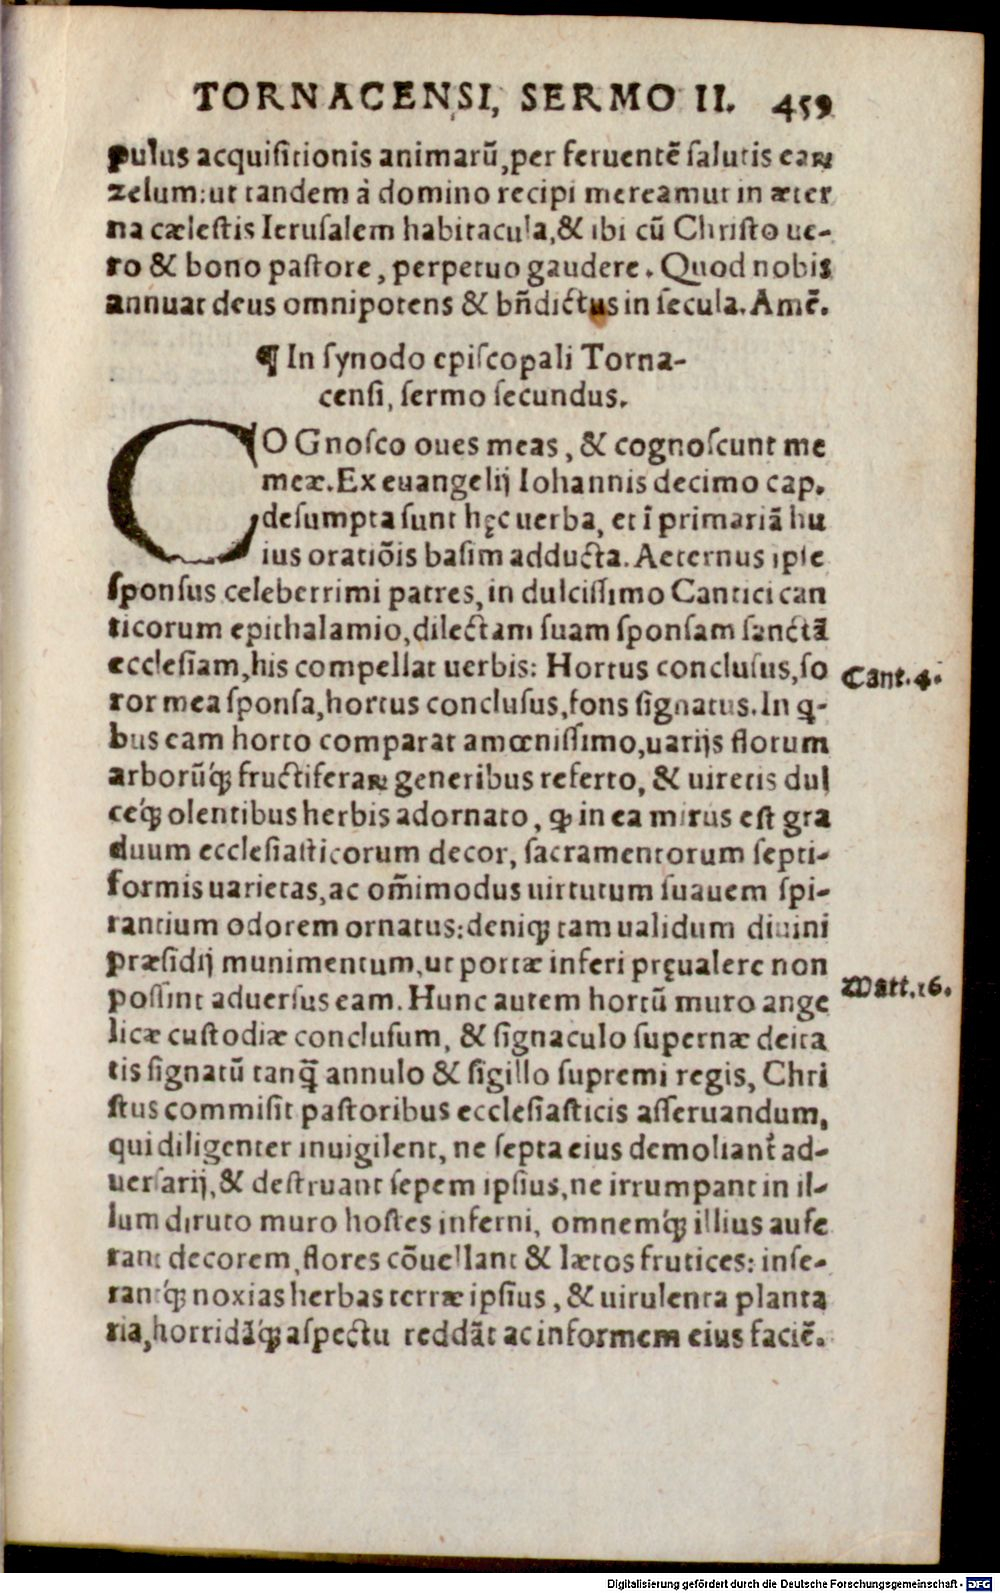 TORNACENSI, SERMO II. 459
pulus acquisitionis animarũ, per feruentẽ salutis eaꝝ
zelum: ut tandem à domino recipi mereamur in æter
na cælestis Ierusalem habitacula, & ibi cũ Christo ue-
ro & bono pastore, perpetuo gaudere. Quod nobis
annuat deus omnipotens & bñdictus in secula. Amẽ.
¶ In synodo episcopali Torna-
censi, sermo secundus.
COGnosco oues meas, & cognoscunt me
meæ. Ex euangelij Iohannis decimo cap.
desumpta sunt hęc uerba, et ĩ primariã hu
ius oratiõis basim adducta. Aeternus ipse
sponsus celeberrimi patres, in dulcissimo Cantici can
ticorum epithalamio, dilectam suam sponsam sanctã
ecclesiam, his compellat uerbis: Hortus conclusus, so
ror mea sponsa, hortus conclusus, fons signatus. In q-
Cant. 4.
bus eam horto comparat amœnissimo, uarijs florum
arborũq́ꝫ fructiferaꝝ generibus referto, & uiretis dul
ceq́ꝫ olentibus herbis adornato, ꝙ in ea mirus est gra
duum ecclesiasticorum decor, sacramentorum septi-
formis uarietas, ac om̃imodus uirtutum suauem spi-
rantium odorem ornatus: deniqꝫ tam ualidum diuini
præsidij munimentum, ut portæ inferi pręualere non
possint aduersus eam. Hunc autem hortũ muro ange
Matt. 16.
licæ custodiæ conclusum, & signaculo supernæ deita
tis signatũ tanq̃ annulo & sigillo supremi regis, Chri
stus commisit pastoribus ecclesiasticis asseruandum,
qui diligenter inuigilent, ne septa eius demoliant᷑ ad-
uersarij, & destruant sepem ipsius, ne irrumpant in il-
lum diruto muro hostes inferni, omnemq́ꝫ illius aufe
rant decorem, flores cõuellant & lætos frutices: inse-
rantq́ꝫ noxias herbas terræ ipsius, & uirulenta planta
ria, horridãq́ꝫ aspectu reddãt ac informem eius faciẽ.
Digitalisierung gefördert durch die Deutsche Forschungsgemeinschaft - DFG